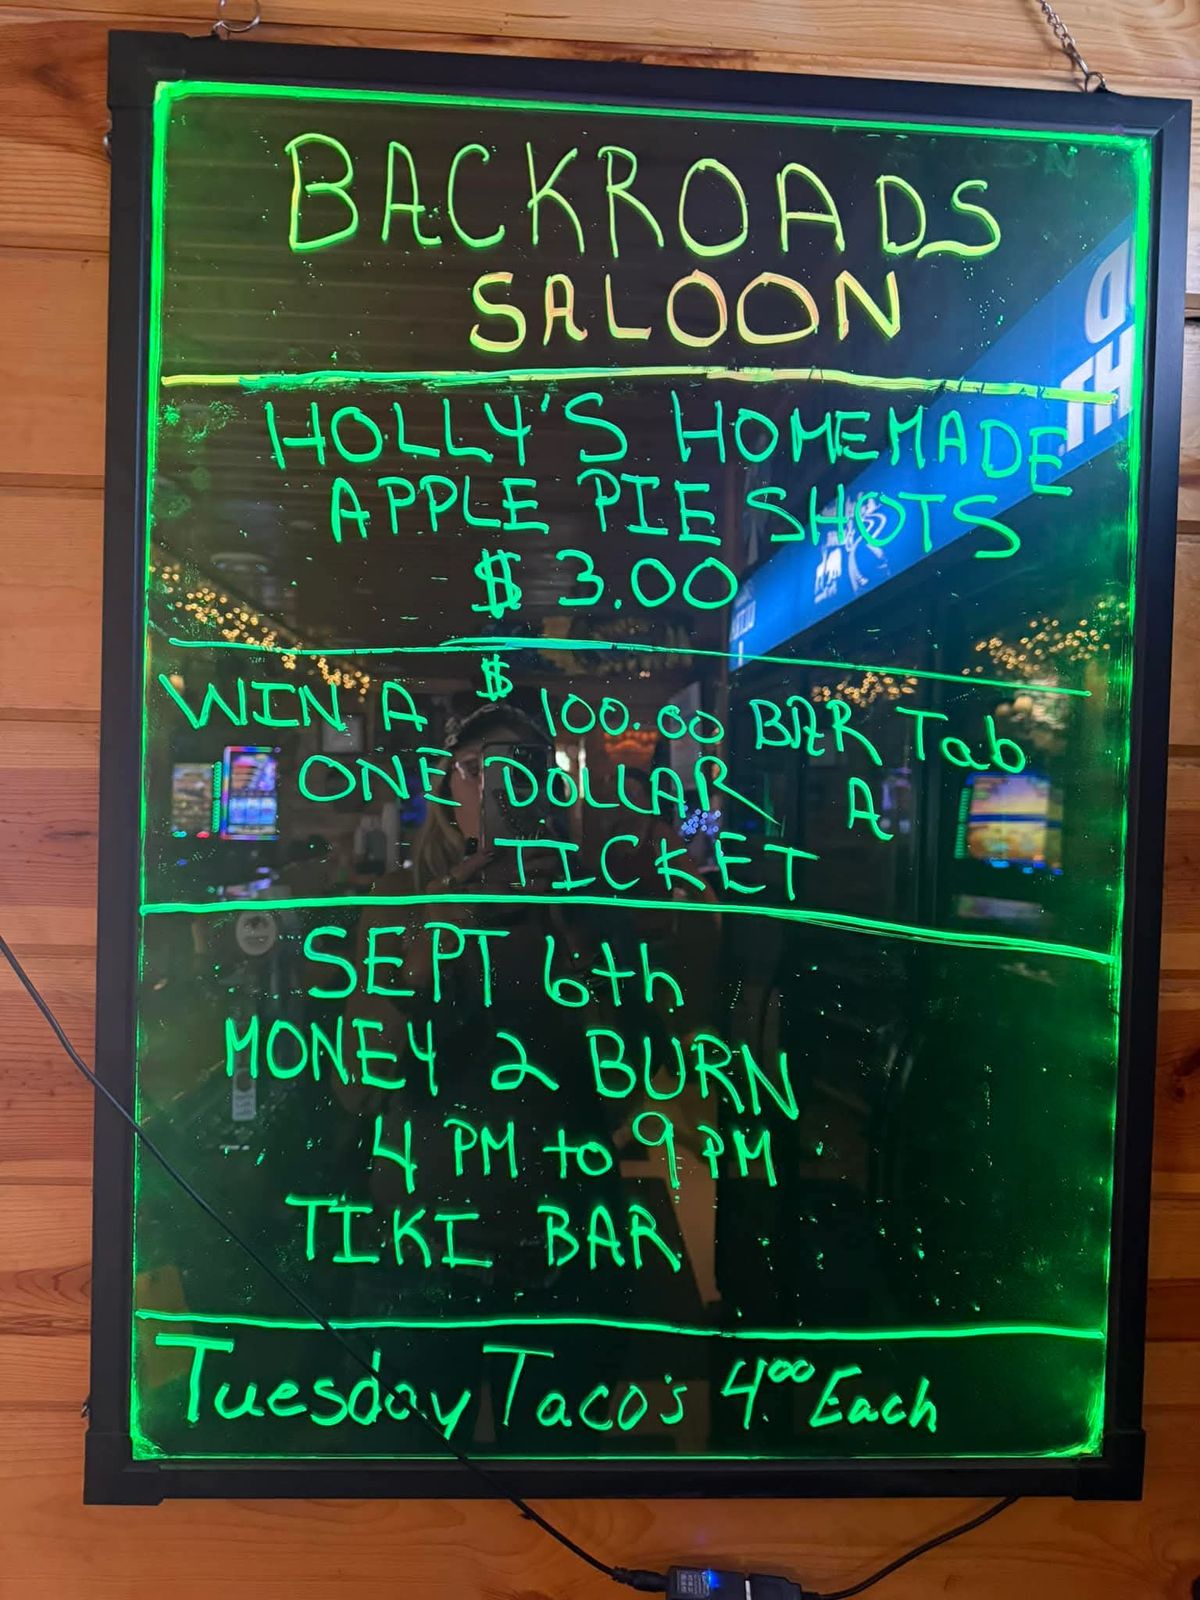 BACKROADS
SALOON
HOLLY'S HOMEMADE
APPLE PIE SHOTS
$ 3.00
WIN A $ 100.00 BAR Tab
ONE DOLLAR A
TICKET
SEPT 6th
MONEY 2 BURN
4 PM to 9 PM
TIKI BAR
Tuesday Taco's 4.00 Each